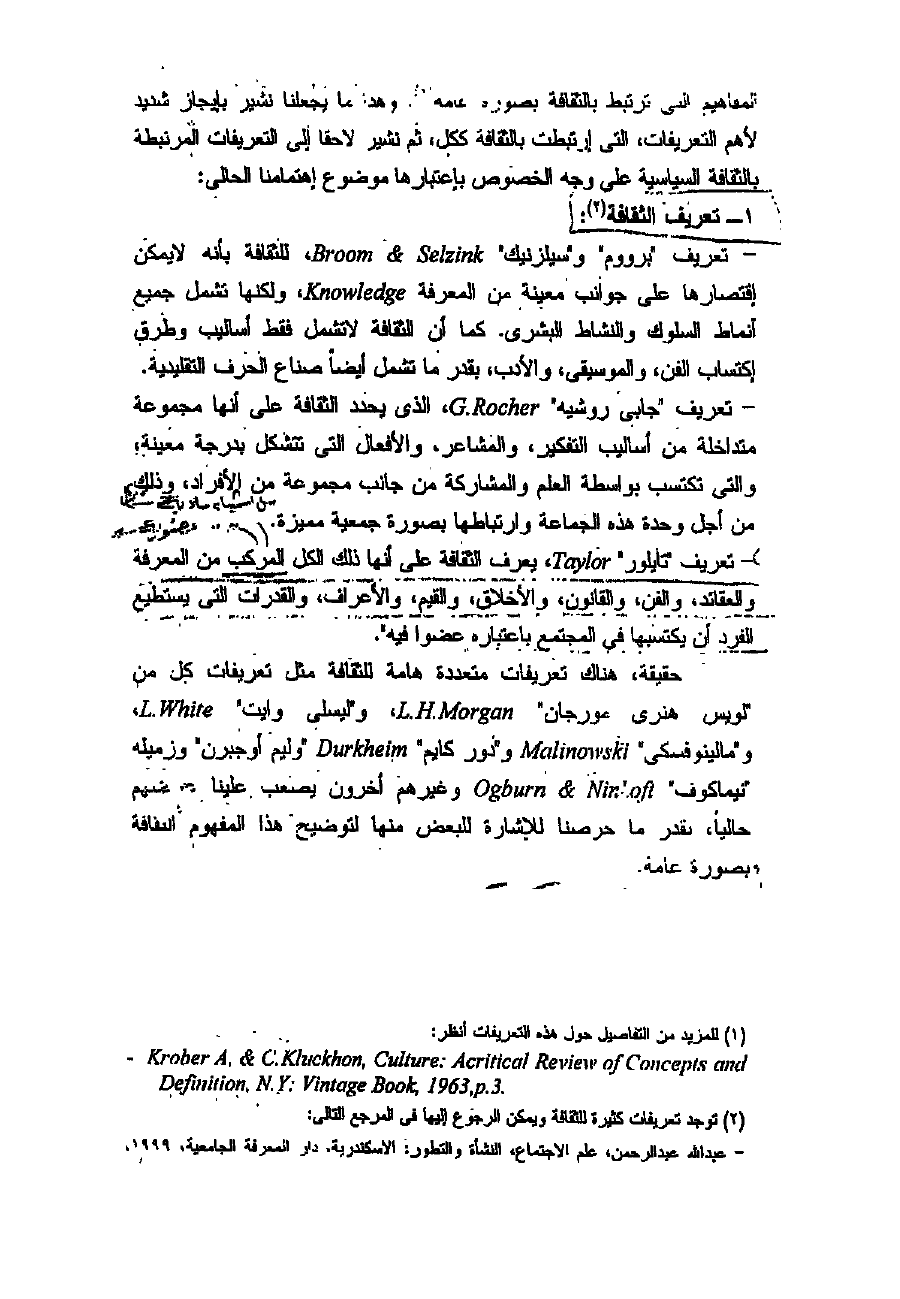 المفاهيم التى ترتبط بالثقافة بصورة عامه⁽¹⁾. وهذا ما يجعلنا نشير بإيجاز شديد
لأهم التعريفات، التى إرتبطت بالثقافة ككل، ثم نشير لاحقا إلى التعريفات المرتبطة
بالثقافة السياسية على وجه الخصوص بإعتبارها موضوع إهتمامنا الحالى:
١ــ تعريف الثقافة(٢):
– تعريف "برووم" و"سيلزنيك" Broom & Selzink، للثقافة بأنه لايمكن
إقتصارها على جوانب معينة من المعرفة Knowledge، ولكنها تشمل جميع
أنماط السلوك والنشاط البشرى. كما أن الثقافة لاتشمل فقط أساليب وطرق
إكتساب الفن، والموسيقى، والأدب، بقدر ما تشمل أيضاً صناع الحرف التقليدية.
– تعريف "جابى روشيه" G.Rocher، الذى يحدد الثقافة على أنها مجموعة
متداخلة من أساليب التفكير، والمشاعر، والأفعال التى تتشكل بدرجة معينة؛
والتى تكتسب بواسطة العلم والمشاركة من جانب مجموعة من الأفراد، وذلك
من أجل وحدة هذه الجماعة وارتباطها بصورة جمعية مميزة.
– تعريف "تايلور" Taylor، يعرف الثقافة على أنها ذلك الكل المركب من المعرفة
والعقائد، والفن، والقانون، والأخلاق، والقيم، والأعراف، والقدرات التى يستطيع
الفرد أن يكتسبها في المجتمع باعتباره عضوا فيه".
حقيقة، هناك تعريفات متعددة هامة للثقافة مثل تعريفات كل من
"لويس هنرى مورجان" L.H.Morgan، و"ليسلى وايت" L.White،
و"مالينوفسكى" Malinowski و"دور كايم" Durkheim "وليم أوجبرن" وزميله
"نيماكوف" Ogburn & Nimkoft وغيرهم أخرون يصعب علينا
حالياً، بقدر ما حرصنا للإشارة للبعض منها لتوضيح هذا المفهوم الثقافة
بصورة عامة.
(١) للمزيد من التفاصيل حول هذه التعريفات أنظر:
- Krober A, & C.Kluckhon, Culture: Acritical Review of Concepts and
Definition, N.Y: Vintage Book, 1963,p.3.
(٢) توجد تعريفات كثيرة للثقافة ويمكن الرجوع إليها فى المرجع التالى:
– عبدالله عبدالرحمن، علم الاجتماع، النشأة والتطور: الاسكندرية، دار المعرفة الجامعية، ١٩٩٩،